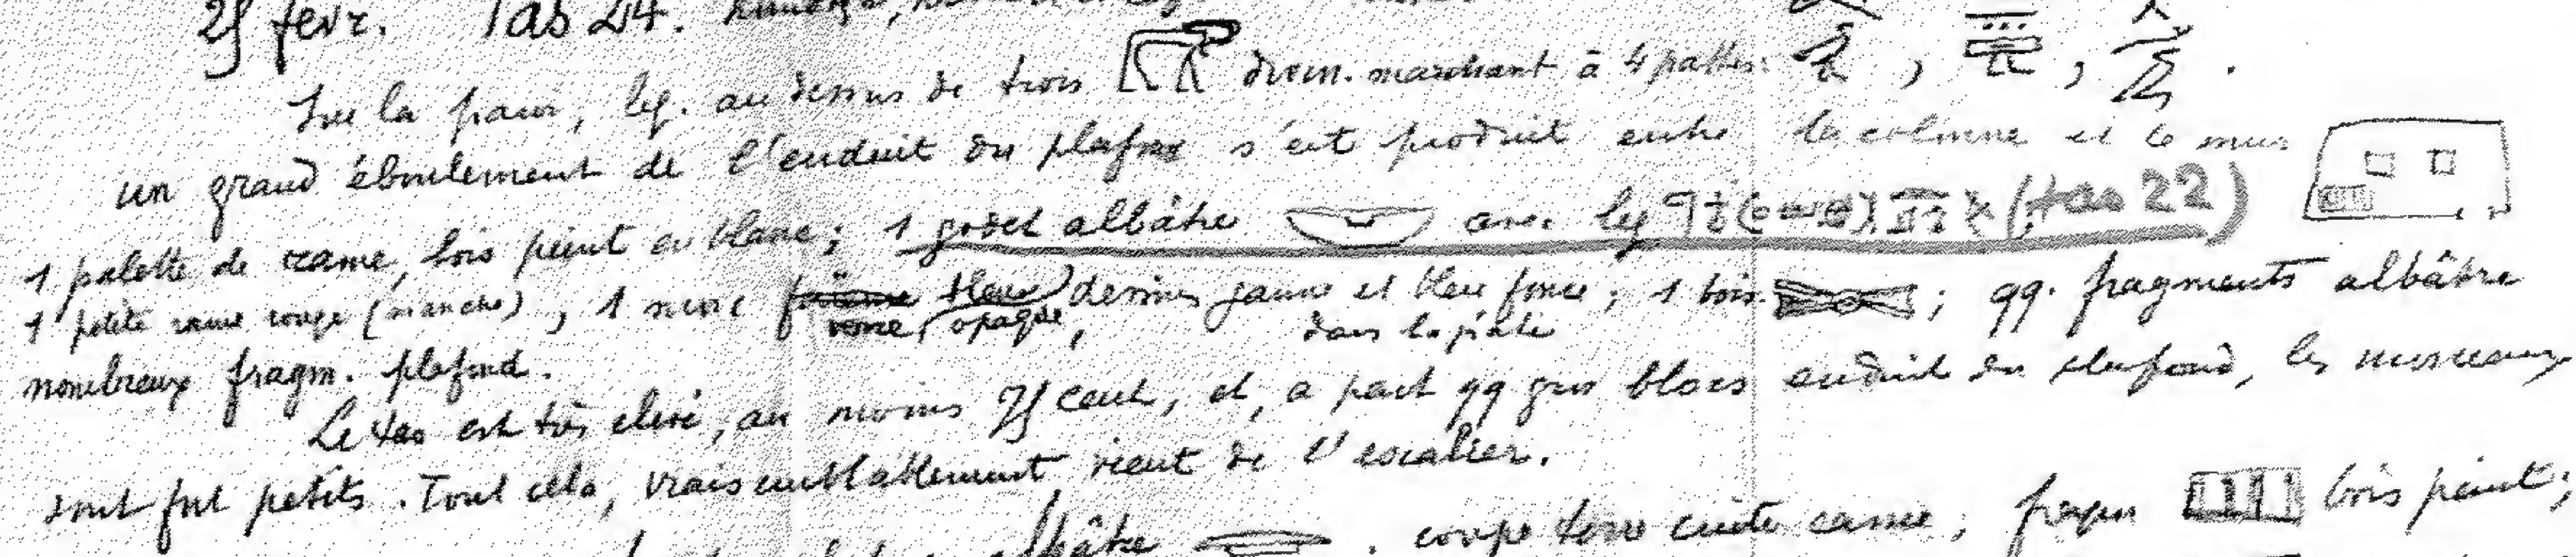 25 févr. Tas 24.
Sur la paroi, lég. au dessus de trois divin. marchant à 4 pattes:
un grand éboulement de l'enduit du plafond s'est produit entre la colonne et le mur
1 palette de rame, bois peint en blanc; 1 godet albâtre avec lég (tas 22)
1 petite rame rouge (manche), 1 dessins jaune et bleu foncé; 1 bois ; qq. fragments albâtre
verre, opaque, dans la pièce
nombreux fragm. plafond.
Le tas est très élevé, au moins 75 cent, et, a part qq gros blocs enduit du plafond, les morceaux
sont fort petits. Tout cela, vraisemblablement vient de l'escalier.
albâtre , coupe terre cuite cassée, bois peint;